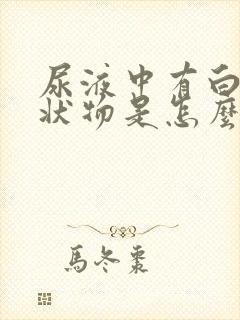 尿液中有白
狀物是怎麼
馬冬棗